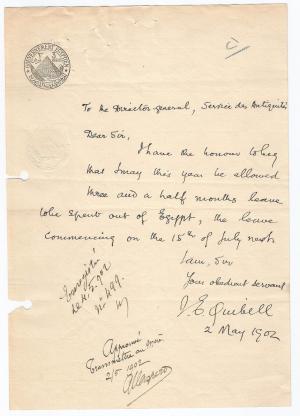 GOUVERNEMENT EGYPTIEN
To the Director general, Service des Antiquités
Dear Sir,
I have the honour to beg
that I may this year be allowed
three and a half months leave
to be spent out of Egypt, the leave
commencing on the 15th of July next.
I am, Sir
Your obedient servant
J E Quibell
2 May 1902
Enregistré
le 4.5.902
No 499
Approuvé
2/5 1902